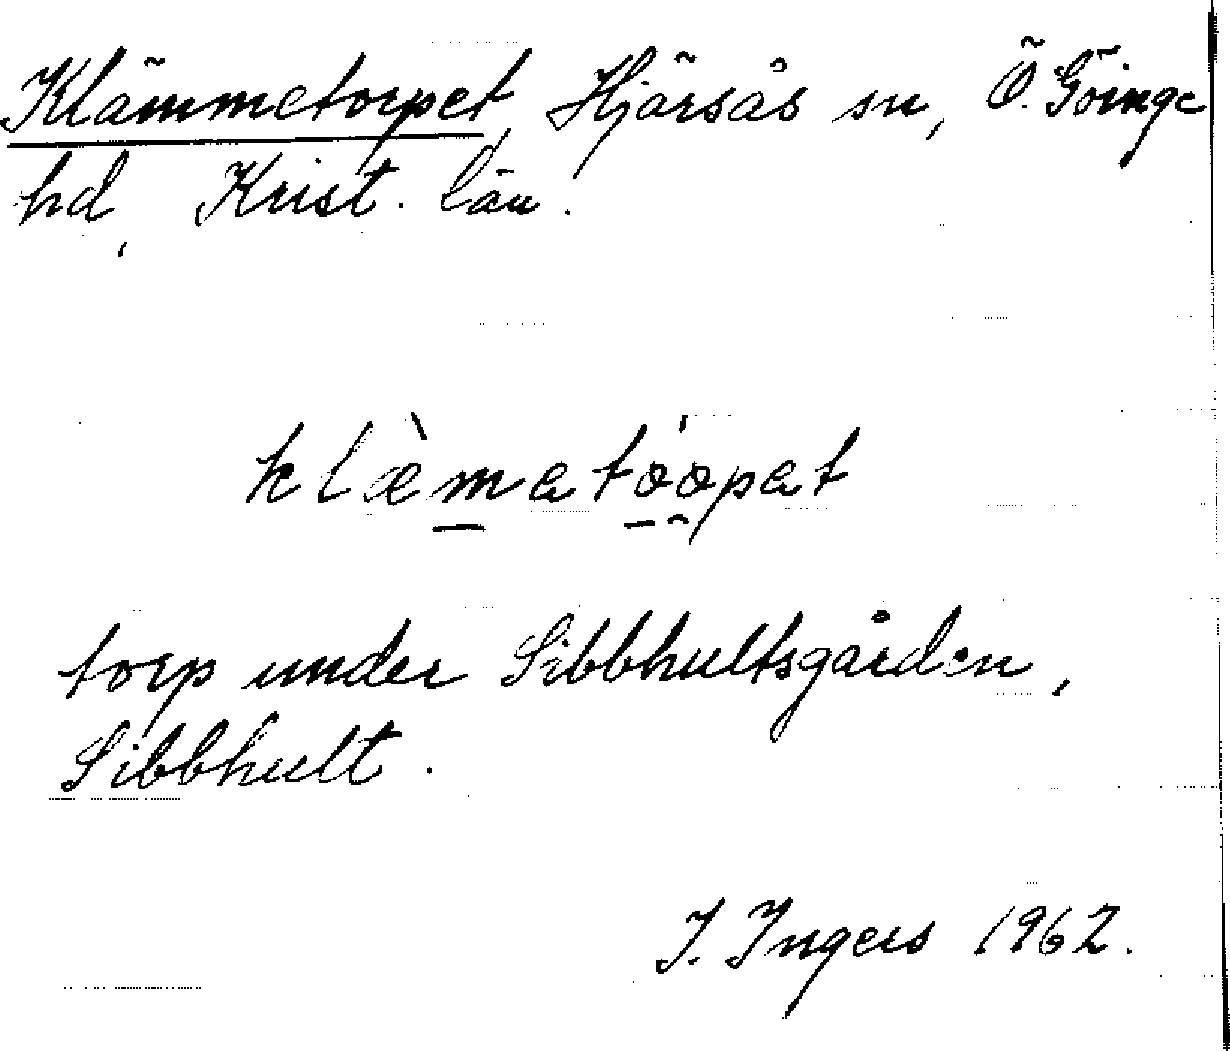 Klämmetorpet, Hjärsås sn, Ö. Göinge
hd, Krist. län.
klæ̀matóopat
torp under Sibbhultsgården,
Sibbhult.
I. Ingers 1962.